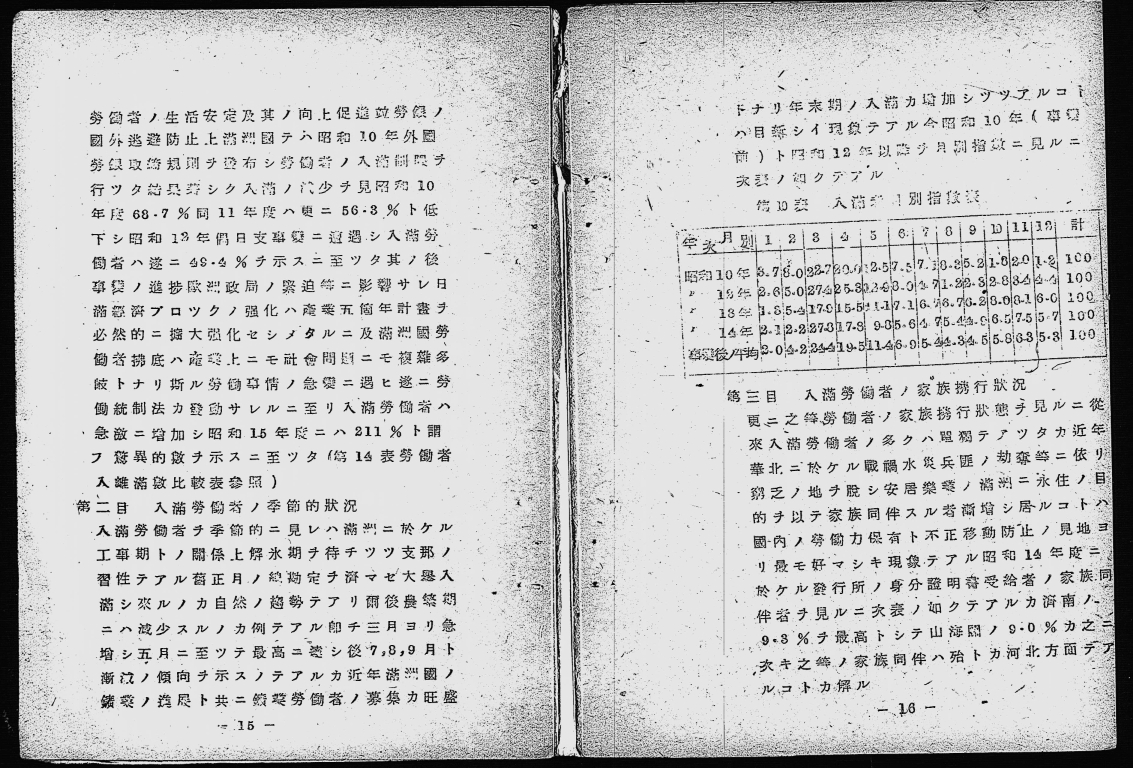 勞働者ノ生活安定及其ノ向上促進竝勞銀ノ
國外逃避防止上滿洲國テハ昭和10年外國
勞働取締規則ヲ發布シ勞働者ノ入滿制限ヲ
行ツタ結果著シク入滿ノ減少ヲ見昭和10
年度68.7%同11年度ハ更ニ56.3%ト低
下シ昭和12年偶日支事變ニ遭遇シ入滿勞
働者ハ遂ニ49.4%ヲ示スニ至ツタ其ノ後
事變ノ進捗歐洲政局ノ緊迫等ニ影響サレ日
滿經濟ブロツクノ强化ハ產業五箇年計畫ヲ
必然的ニ擴大强化セシメタルニ及滿洲國勞
働者拂底ハ產業上ニモ社會問題ニモ複雜多
岐トナリ斯ル勞働事情ノ急變ニ遇ヒ遂ニ勞
働統制法カ發動サレルニ至リ入滿勞働者ハ
急激ニ增加シ昭和15年度ニハ211%ト謂
フ驚異的數ヲ示スニ至ツタ(第14表勞働者
入離滿數比較表參照)
第二目 入滿勞働者ノ季節的狀況
入滿勞働者ヲ季節的ニ見レハ滿洲ニ於ケル
工事期トノ關係上解氷期ヲ待チツツ支那ノ
習性テアル舊正月ノ總勘定ヲ濟マセ大擧入
滿シ來ルノカ自然ノ趨勢テアリ爾後農繁期
ニハ減少スルノカ例テアル卽チ三月ヨリ急
增シ五月ニ至ツテ最高ニ達シ後7,8,9月ト
漸減ノ傾向ヲ示スノテアルカ近年滿洲國ノ
鑛業ノ進展ト共ニ鑛業勞働者ノ募集カ旺盛
- 15 -
トナリ年末期ノ入滿カ增加シツツアルコト
ハ目新シイ現象テアル今昭和10年(事變
前)ト昭和12年以降ヲ月別指數ニ見ルニ
次表ノ如クテアル
第10表 入滿者月別指數表
年次 月別 1 2 3 4 5 6 7 8 9 10 11 12 計
昭和10年 100
〃 12年 2.6 5.0 27.4 25.3 100
〃 13年 100
〃 14年 2.1 2.2 27.8 17.3 100
事變後ノ平均 2.0 4.2 24.4 19.5 11.4 6.9 5.4 4.3 4.5 5.8 6.3 5.3 100
第三目 入滿勞働者ノ家族携行狀況
更ニ之等勞働者ノ家族携行狀態ヲ見ルニ從
來入滿勞働者ノ多クハ單獨テアツタカ近年
華北ニ於ケル戰禍水災兵匪ノ劫奪等ニ依リ
窮乏ノ地ヲ脫シ安居樂業ノ滿洲ニ永住ノ目
的ヲ以テ家族同伴スル者漸增シ居ルコトハ
國內ノ勞働力保有ト不正移動防止ノ見地ヨ
リ最モ好マシキ現象テアル昭和14年度ニ
於ケル發行所ノ身分證明書受給者ノ家族同
伴者ヲ見ルニ次表ノ如クテアルカ濟南ノ
9.3%ヲ最高トシテ山海關ノ9.0%カ之ニ
次キ之等ノ家族同伴ハ殆トカ河北方面テア
ルコトカ解ル
- 16 -